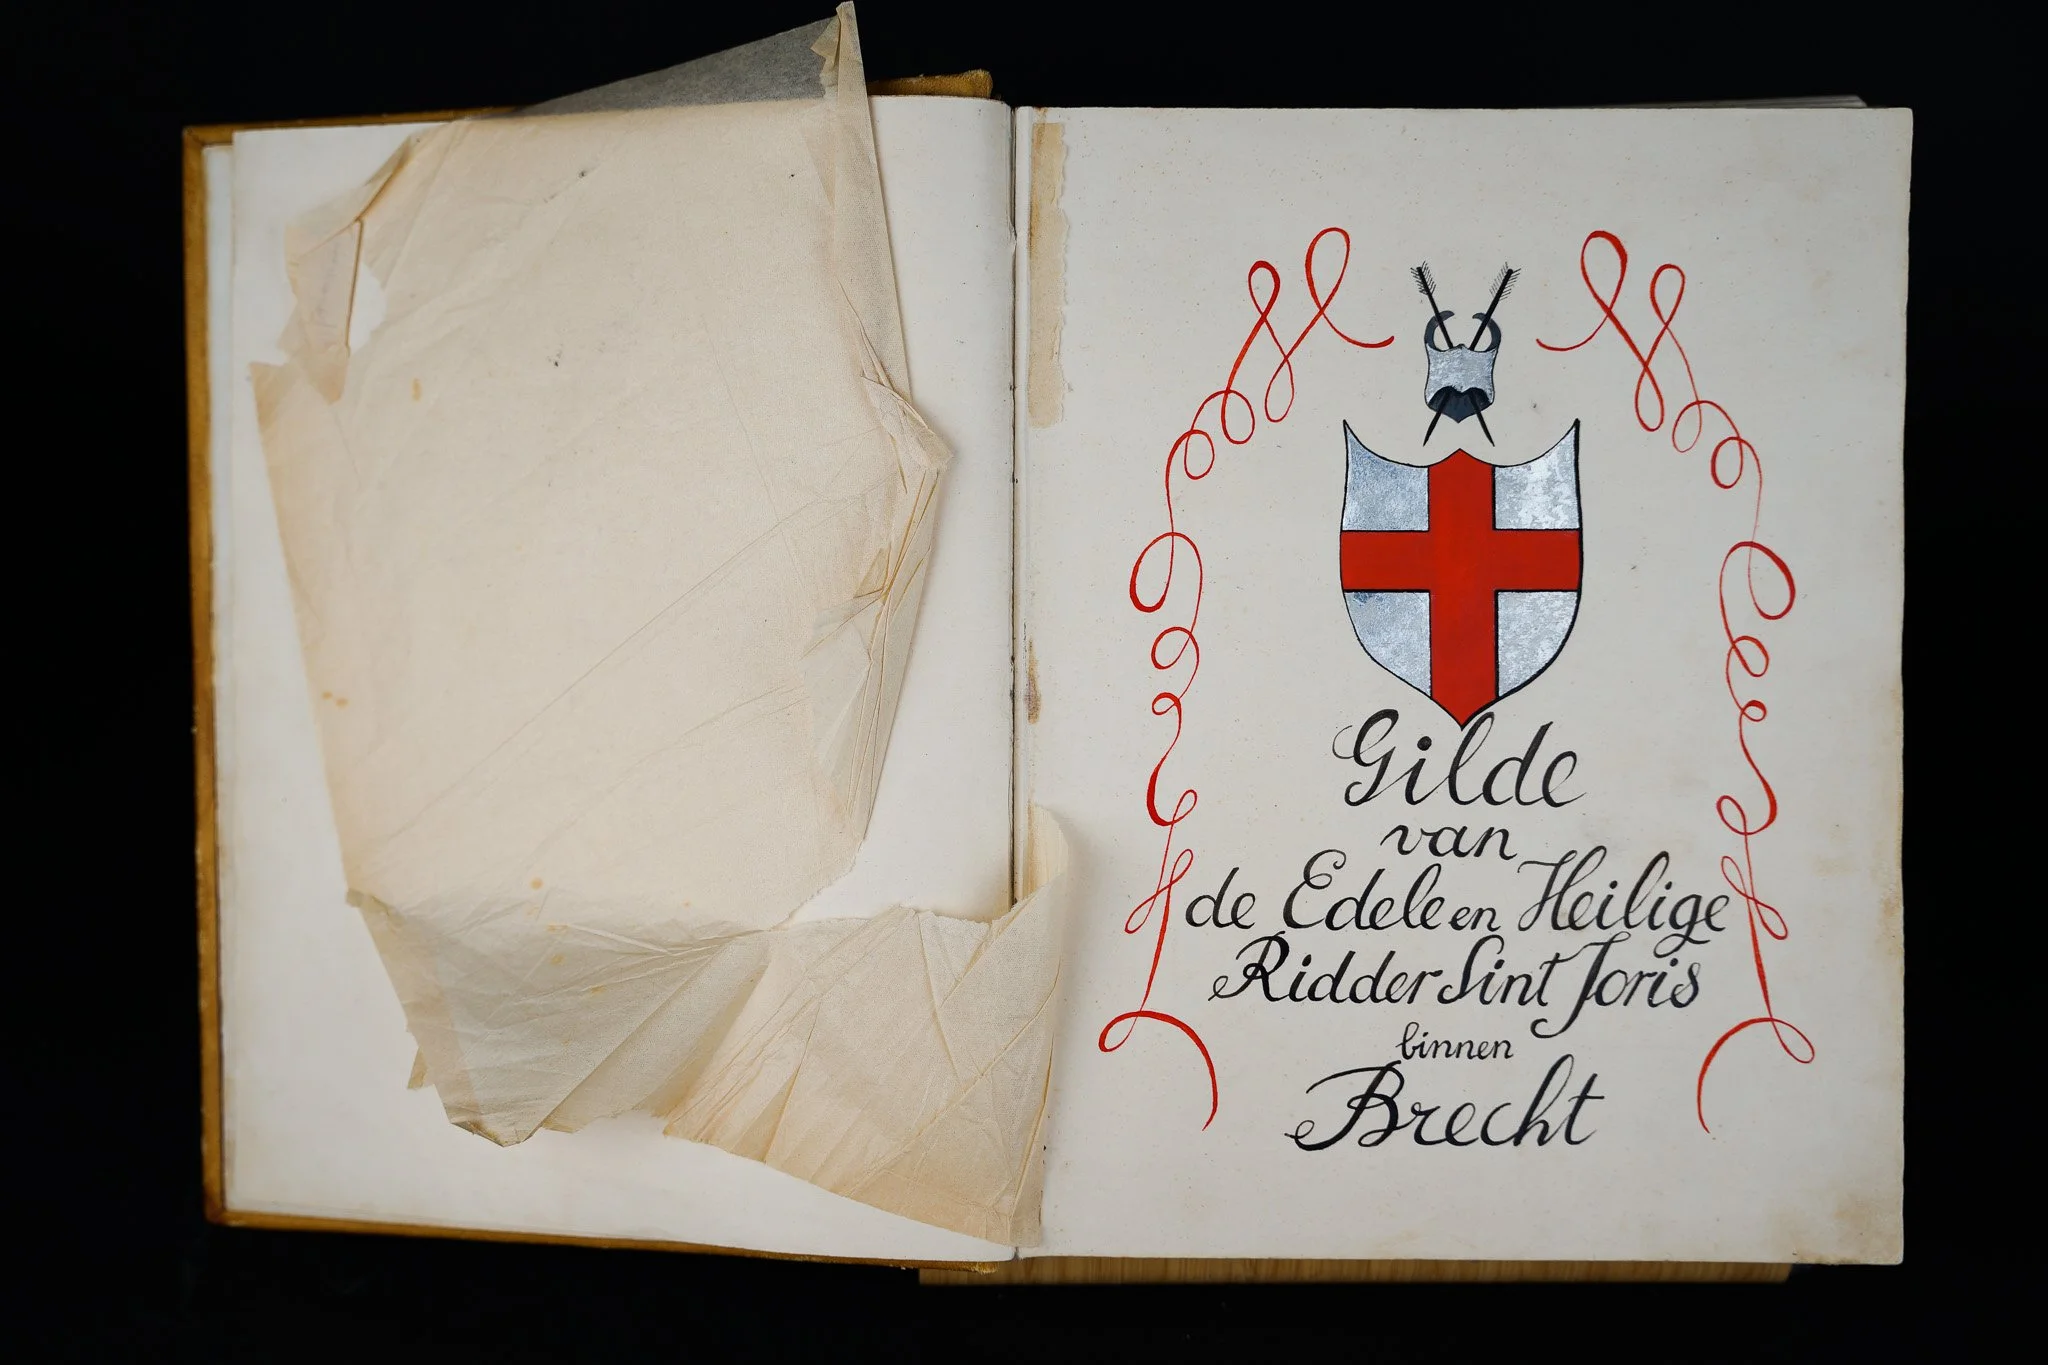 Gilde
van
de Edele en Heilige
Ridder Sint Joris
binnen
Brecht